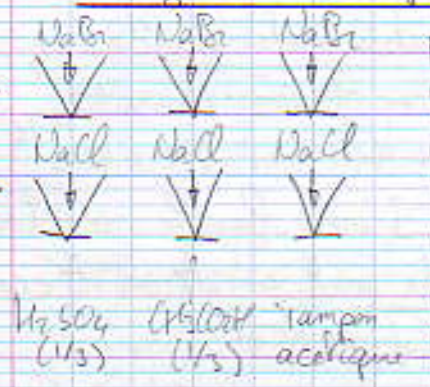 NaBr NaBr NaBr
NaCl NaCl NaCl
H2SO4 CH3CO2H Tampon
(1/3) (1/3) acétique